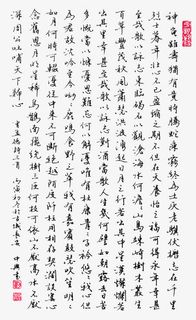 神龜雖壽猶有竟時騰蛇乘霧終為土灰老驥伏櫪志在千里
烈士暮年壯心不已盈縮之期不但在天養怡之福可得永年幸
甚至哉歌以詠志東臨碣石以觀滄海水何澹澹山島竦峙樹木叢生
百草豐茂秋風蕭瑟洪波湧起日月之行若出其中星漢燦爛若
出其里幸甚至哉歌以詠志對酒當歌人生幾何譬如朝露去日苦
多慨當以慷憂思難忘何以解憂唯有杜康青青子衿悠悠我心但
為君故沉吟至今呦呦鹿鳴食野之苹我有嘉賓鼓瑟吹笙明明
如月何時可掇憂從中來不可斷絕越陌度阡枉用相存契闊談宴心
念舊恩月明星稀烏鵲南飛繞樹三匝何枝可依山不厭高水不厭
深周公吐哺天下歸心
曹孟德詩三首